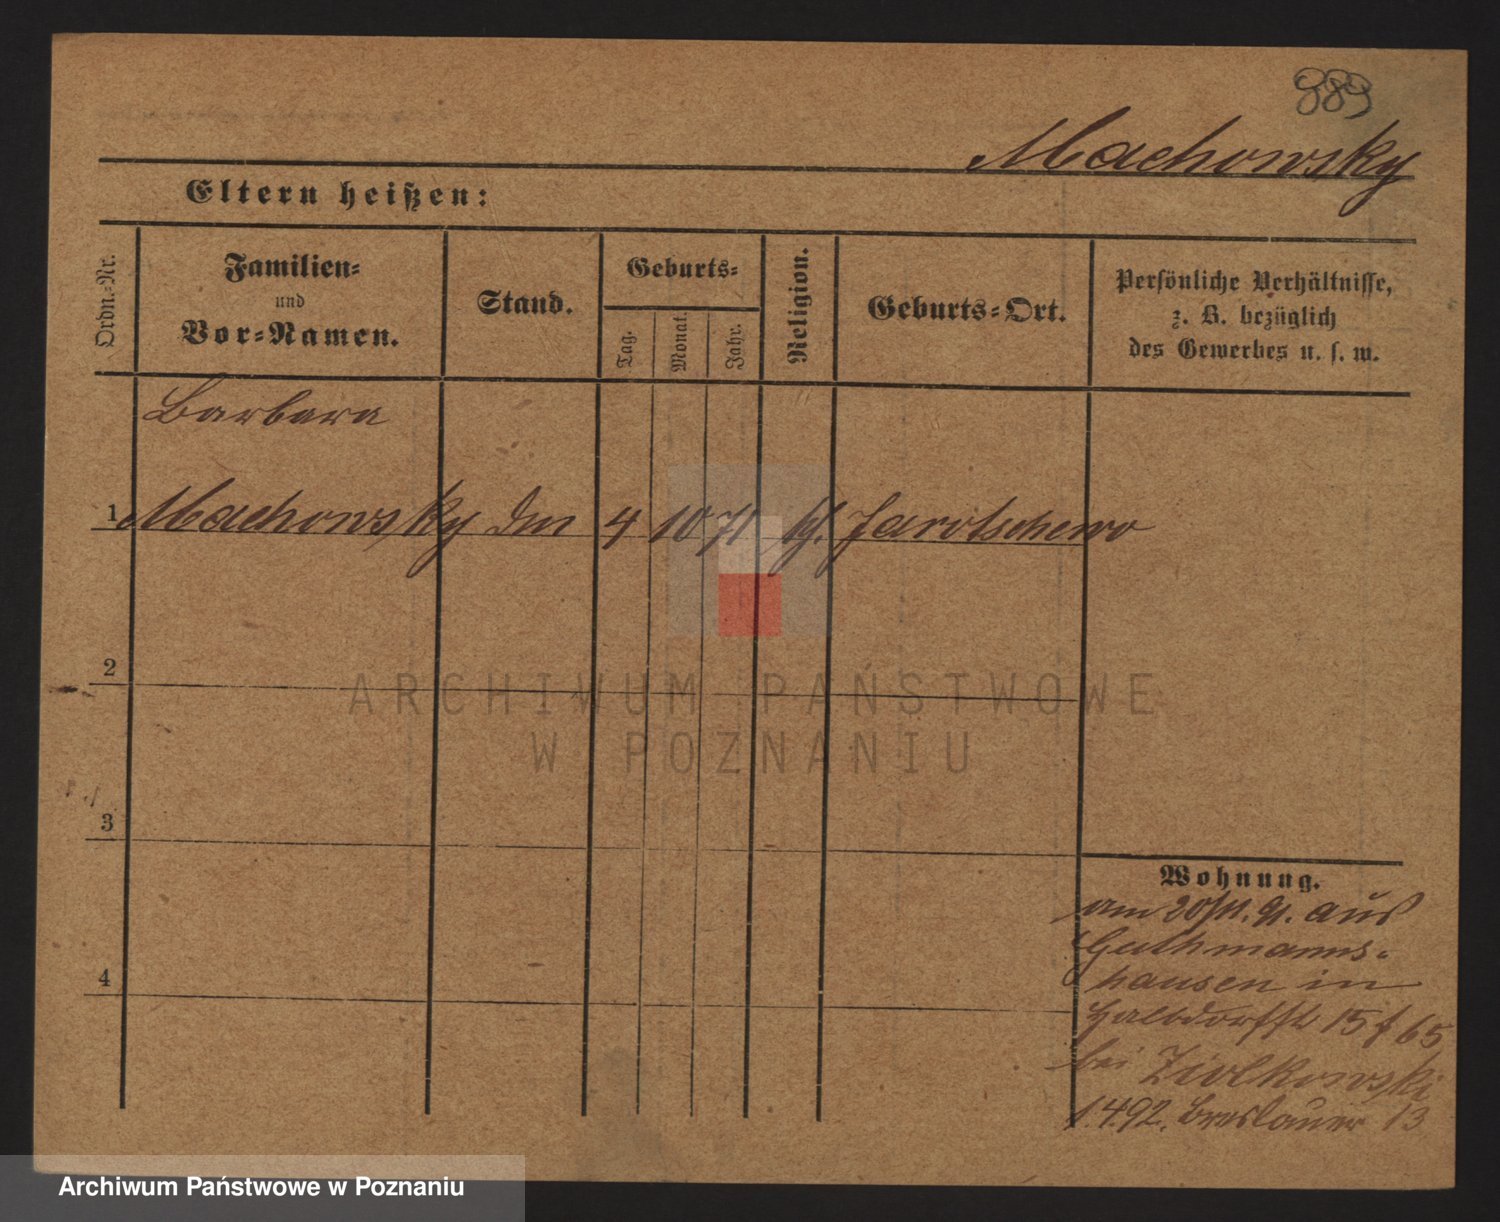 889
Machowsky
Eltern heißen:
Ordn.-Nr.
Familien-
und
Vor-Namen.
Stand.
Geburts-
Tag.
Monat.
Jahr.
Religion.
Geburts-Ort.
Persönliche Verhältnisse,
z. B. bezüglich
des Gewerbes u. s. w.
Barbara
1 Machowsky 4 10 71 Jarotschewo
2
3
4
ARCHIWUM PAŃSTWOWE
W POZNANIU
Wohnung.
am 20/11. 91. aus
Guthmanns-
hausen in
Halbdorfstr 15 f 65
bei Ziolkowski
1.4.92. Breslauer 13
Archiwum Państwowe w Poznaniu